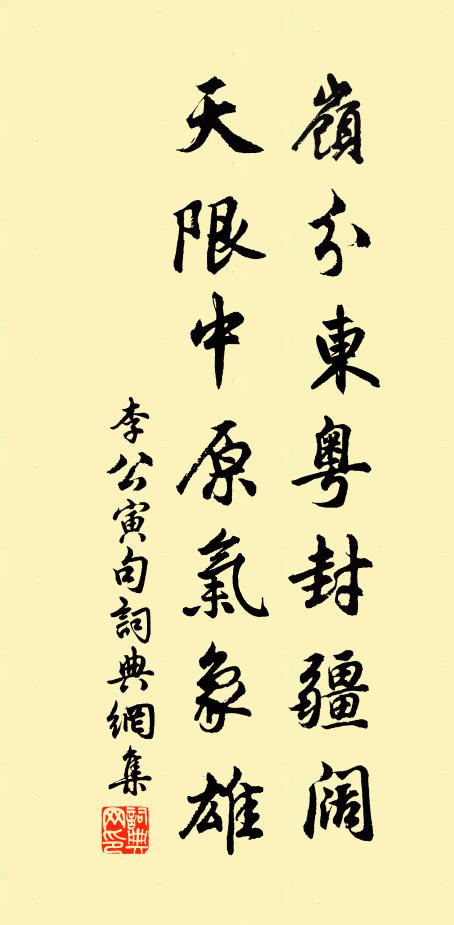 嶺分東粵封疆闊
天限中原氣象雄
李公寅句詞典網集
詞典網印